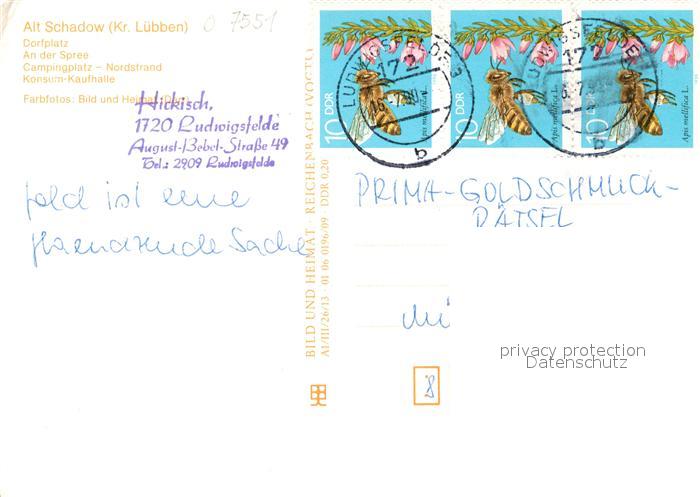 Alt Schadow (Kr. Lübben)
Dorfplatz
An der Spree
Campingplatz – Nordstrand
Konsum-Kaufhalle
Farbfotos: Bild und Heimat
0 7551
Hickisch,
1720 Ludwigsfelde
August-Bebel-Straße 49
Tel.: 2909 Ludwigsfelde
Gold ist eine
glaenzende Sache
BILD UND HEIMAT · REICHENBACH (VOGTL)
A1/III/26/13 · 01 06 0196/09 DDR 0,20
10 DDR
Apis mellifica L.
10 DDR
Apis mellifica L.
10
Apis mellifica L.
LUDWIGSFELDE
172
b
LUDWIGSFELDE
172
b
PRIMA-GOLDSCHMUCK-
RÄTSEL
8
privacy protection
Datenschutz